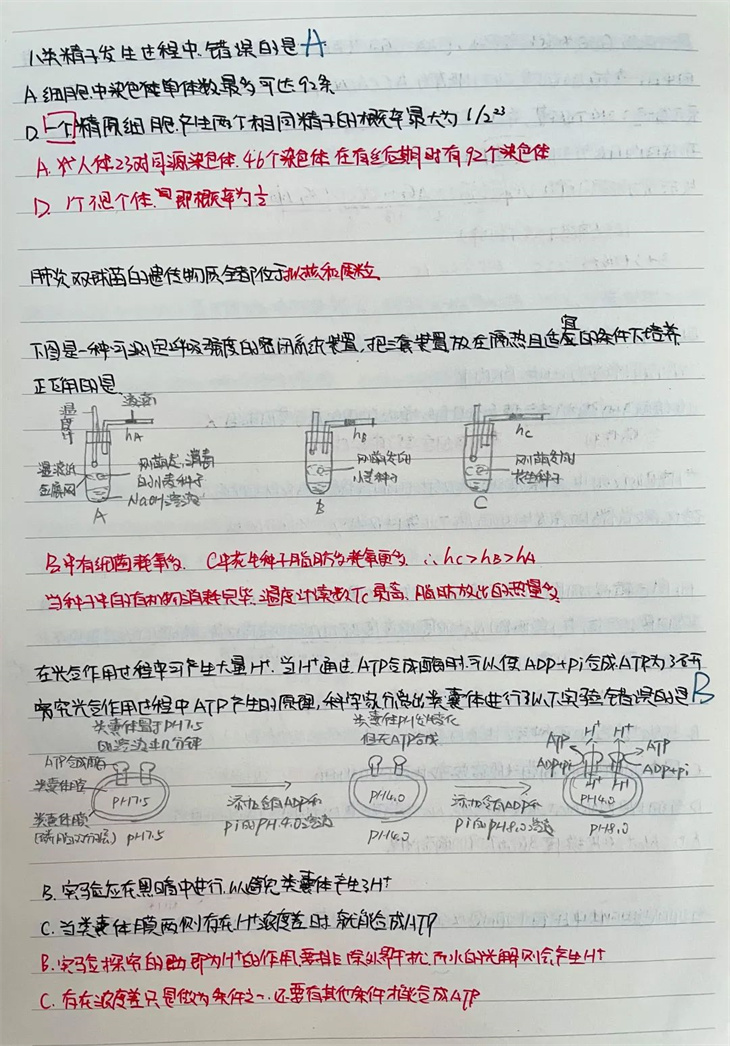 人类精子发生过程中,错误的是A
A.细胞中染色体单体数最多可达92条
D.一个精原细胞产生两个相同精子的概率最大为1/2²³
A.对人体23对同源染色体.46个染色体.在有丝后期时有92个染色体
D.
即概率为½
肺炎双球菌的遗传物质全部位于拟核和质粒
下图是一种可测定呼吸强度的密闭系统装置,把三套装置放在隔热且适宜的条件下培养
正确的是
温度计
液滴
hA
湿滤纸
金属网
刚萌发,消毒
的小麦种子
NaOH溶液
A
hB
刚萌发的
小麦种子
B
hC
刚萌发的
花生种子
C
B中有细菌耗氧多. C中花生种子脂肪多耗氧更多 ∴hC>hB>hA
当种子中的有机物消耗完毕,温度计读数TC最高,脂肪放出的热量多
在光合作用过程中可产生大量H⁺.当H⁺通过ATP合成酶时.可以使ADP+Pi合成ATP为了研
究光合作用过程中ATP产生的原理,科学家分离出类囊体进行了以下实验错误的是B
类囊体置于PH7.5
的溶液中几分钟
ATP合成酶
类囊体腔
类囊体膜
(磷脂双分子层)
PH7.5
pH7.5
添加含有ADP和
pi的pH4.0溶液
类囊体PH发生变化
但无ATP合成
PH4.0
pH4.0
添加含有ADP和
pi的pH8.0溶液
ATP H⁺ H⁺ ATP
ADP+pi ADP+pi
H⁺ H⁺
PH4.0
PH8.0
B.实验应在黑暗中进行.以避免类囊体产生H⁺
C.当类囊体膜两侧存在H⁺浓度差时.就能合成ATP
B.实验探究目的即为H⁺的作用,要排除外界干扰.而水的光解则会产生H⁺
C.存在浓度差只是做为条件之一.还要有其他条件才能合成ATP